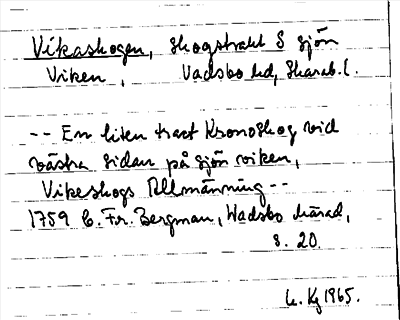 Vikaskogen, skogstrakt S sjön
Viken, Vadsbo hd, Skarab. l.
-- En liten tract Kronoskog vid
västra sidan på sjön viken,
Vikeskogs Allmänning --
1759 C. Fr. Bergman, Wadsbo härad,
s. 20.
1965.